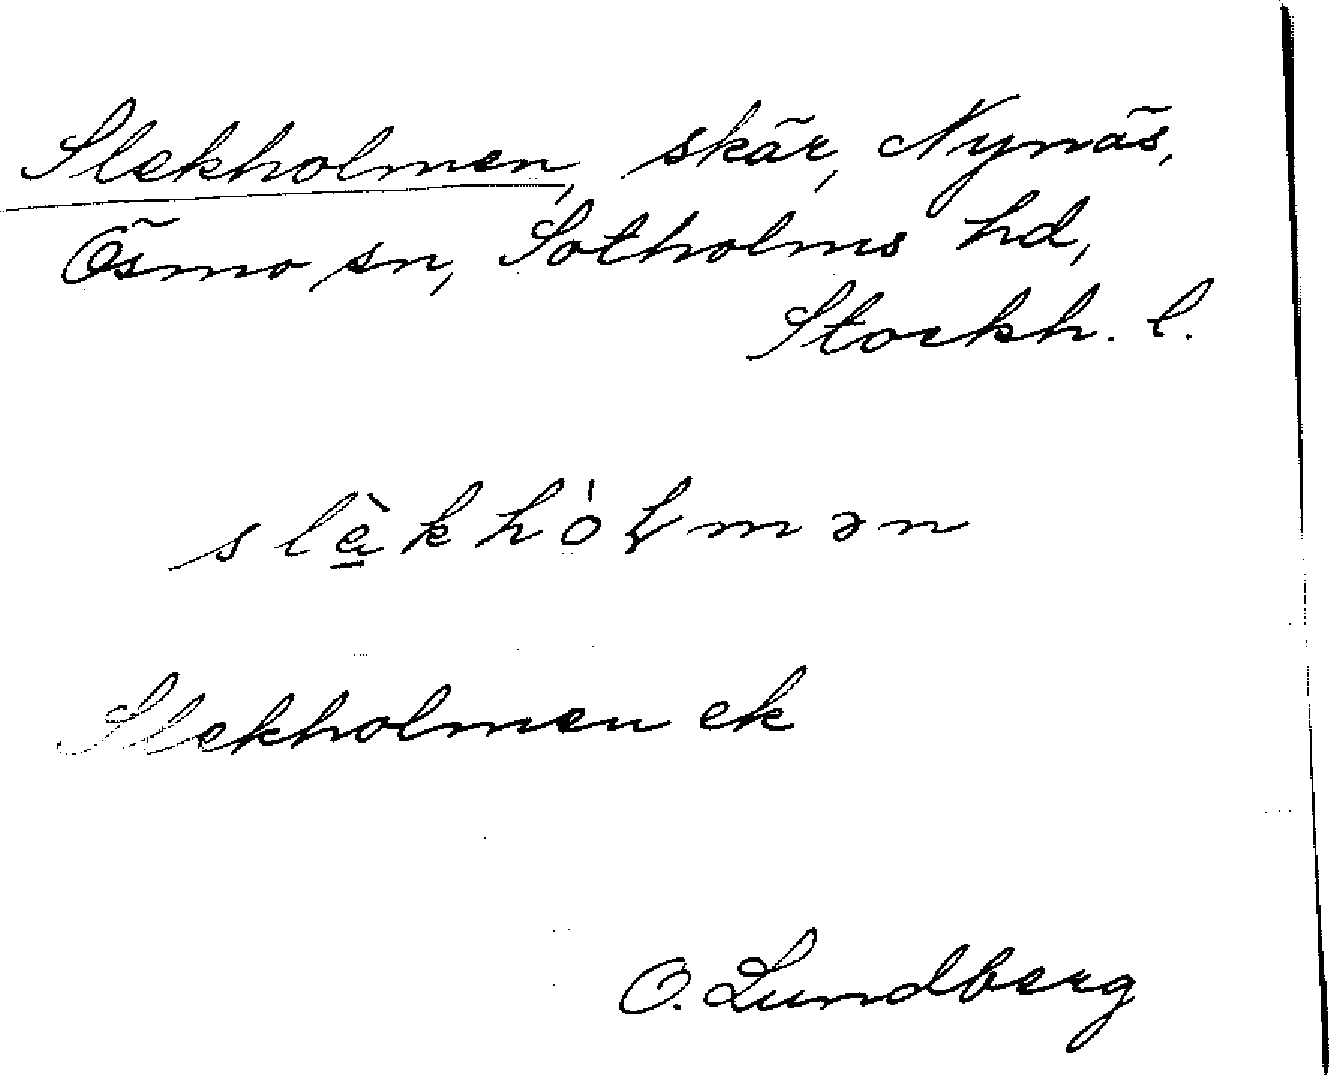 Slekholmen, skär, Nynäs,
Ösmo sn, Sotholms hd,
Stockh. l.
slèkhòɫmən
Slekholmen ek
O. Lundberg